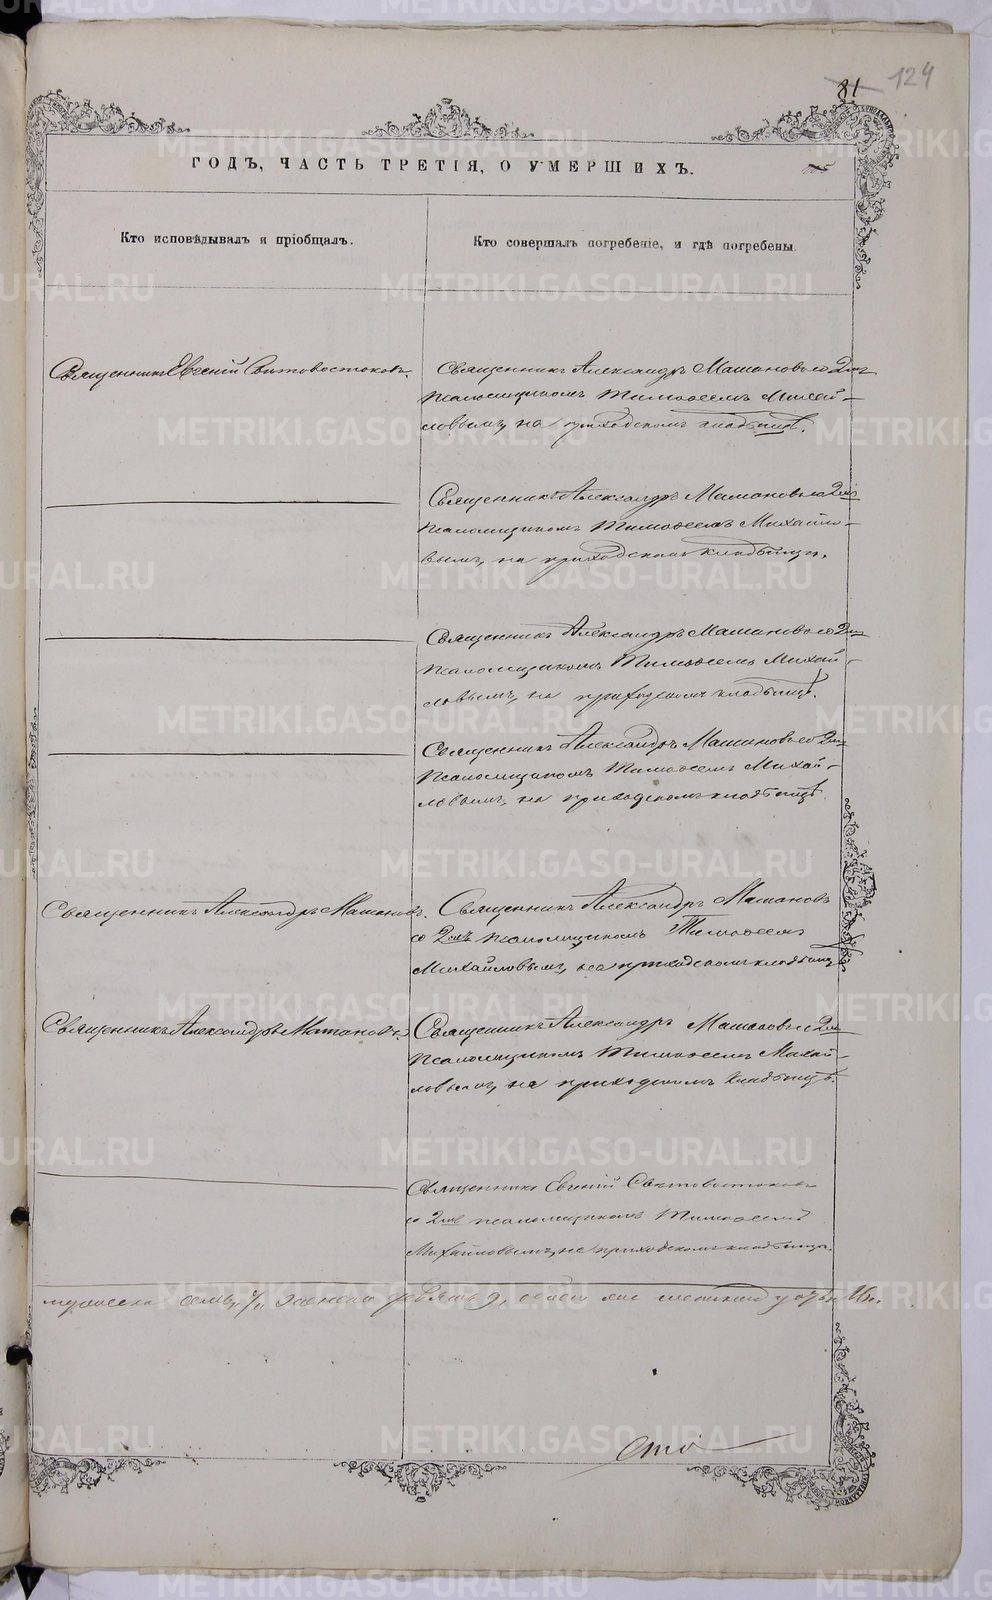 81 124
ГОДЪ, ЧАСТЬ ТРЕТІЯ, О УМЕРШИХЪ.
Кто исповѣдывалъ и пріобщалъ.
Кто совершалъ погребеніе, и гдѣ погребены.
Священникъ Евгеній Свѣтовостоковъ.
Священникъ Александръ Мамановъ со 2мъ
псаломщикомъ Тимоѳеемъ Михай-
ловымъ, на приходскомъ кладбищѣ.
Священникъ Александръ Мамановъ со 2мъ
псаломщикомъ Тимоѳеемъ Михайло-
вымъ, на приходскомъ кладбищѣ.
Священникъ Александръ Мамановъ со 2мъ
псаломщикомъ Тимоѳеемъ Михай-
ловымъ, на приходскомъ кладбищѣ.
Священникъ Александръ Мамановъ со 2мъ
псаломщикомъ Тимоѳеемъ Михай-
ловымъ, на приходскомъ кладбищѣ
Священникъ Александръ Мамановъ.
Священникъ Александръ Мамановъ
со 2мъ псаломщикомъ Тимоѳеемъ
Михайловымъ, на приходскомъ кладбищѣ
Священникъ Александръ Мамановъ.
Священникъ Александръ Мамановъ со 2мъ
псаломщикомъ Тимоѳеемъ Михай-
ловымъ, на приходскомъ кладбищѣ.
Священникъ Евгеній Свѣтовостоковъ
со 2мъ псаломщикомъ Тимоѳеемъ
Михайловымъ, на приходскомъ кладбищѣ.
мужеска семь, 7, женска девять 9, обоего
METRIKI.GASO-URAL.RU